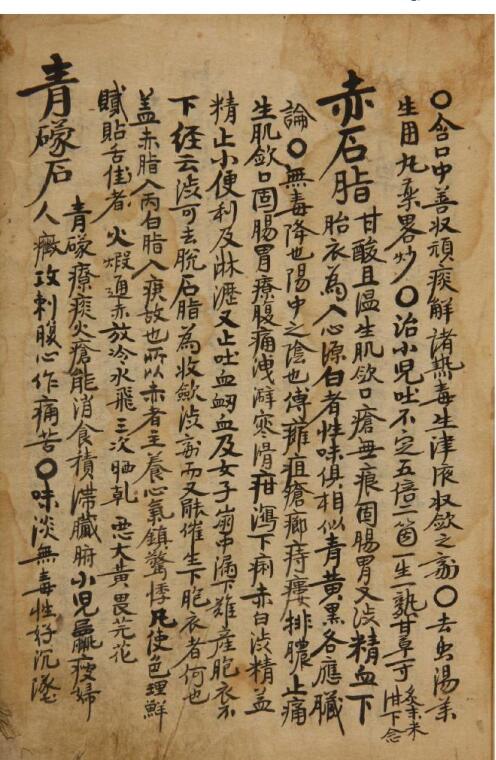 〇含口中善收頑痰解諸熱毒生津液收歛之劑〇去虫湯藥
生用丸藥畧炒〇治小兒吐不定五倍二箇一生一熟甘草寸
赤石脂 甘酸且温生肌歛口瘡無痕固腸胃又澁精血下
胎衣為入心源白者性味俱相似青黄黒各應臟
論〇無毒降也陽中之陰也傅癰疽瘡癤痔瘻排膿止痛
生肌歛口固腸胃療腹痛洩澼寒滑疳瀉下痢赤白澁精益
精止小便利及淋瀝又止吐血衂血及女子崩中漏下難産胞衣不
下経云澁可去脫石脂為收歛澁劑而又能催生下胞衣者何也
盖赤脂入丙白脂入庚故也所以赤者主養心氣鎮驚悸凡使色理鮮
膩貼舌佳者火煆通赤放冷水飛三次晒乾 惡大黄畏芫花
青礞石 青礞療痰火瘡能消食積滯臟腑小兒羸瘦婦
人癥攻刺腹心作痛苦〇味淡無毒性好沉墜